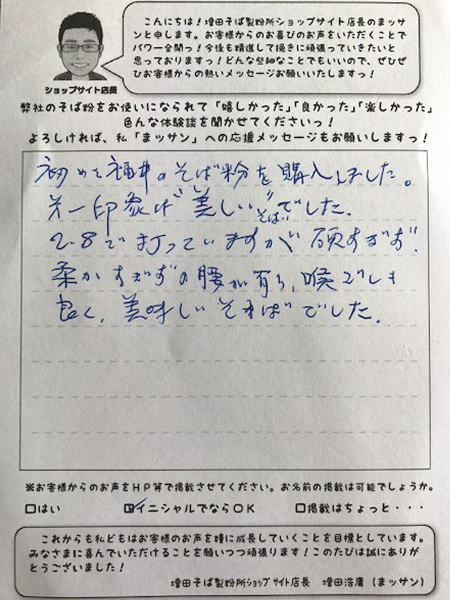 こんにちは!増田そば製粉所ショップサイト店長のまッサ
ンと申します。お客様からのお喜びのお声をいただくことで
パワー全開っ!今後も精進して挽きに頑張っていきたいと
思っております!どんな些細なことでもいいので、ぜひぜ
ひお客様からの熱いメッセージお願いいたしますっ!
ショップサイト店長
弊社のそば粉をお使いになられて「嬉しかった」「良かった」「楽しかった」
色んな体験談を聞かせてくださいっ!
よろしければ、私「まッサン」への応援メッセージもお願いしますっ!
初めて福井のそば粉を購入しました。
第一印象は"美しいそば"でした。
2.8で打っていますが 硬すぎず
柔かすぎずの腰が有り、喉ごしも
良く、美味しいそばでした。
※お客様からのお声をHP等で掲載させてください。お名前の掲載は可能でしょうか。
□はい ☑イニシャルでならOK □掲載はちょっと・・・
これからも私どもはお客様のお声を糧に成長していくことを目標としています。
みなさまに喜んでいただけることを願いつつ頑張ります!このたびは誠にありが
とうございました!
増田そば製粉所ショップサイト店長 増田浩庸(まッサン)